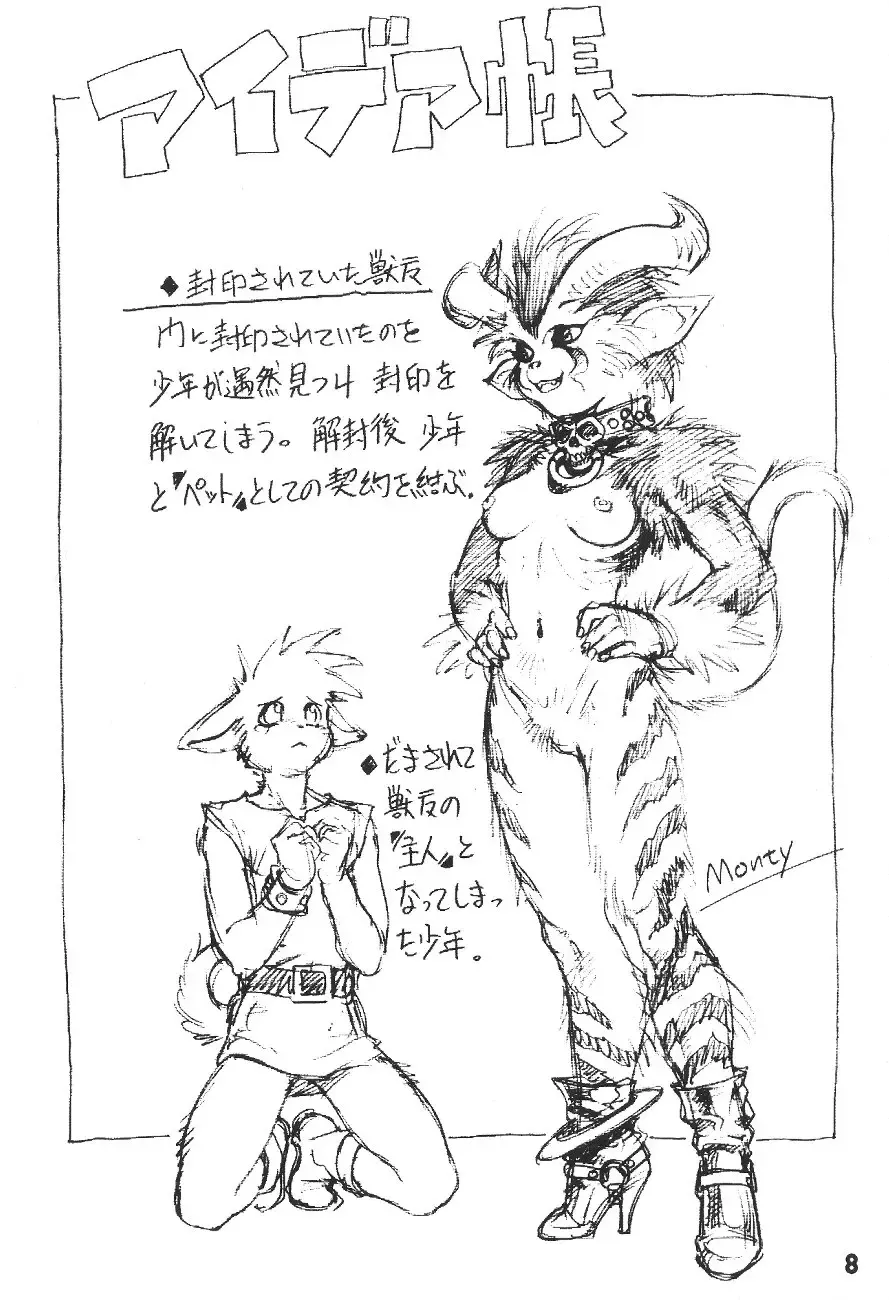 アイデア帳
◆封印されていた獣友
内に封印されていたのを
少年が遇然見つけ 封印を
解いてしまう。解封後 少年
と『ペット』としての契約を結ぶ。
◆だまされて
獣友の
『主人』と
なってしまっ
た少年。
Monty
8